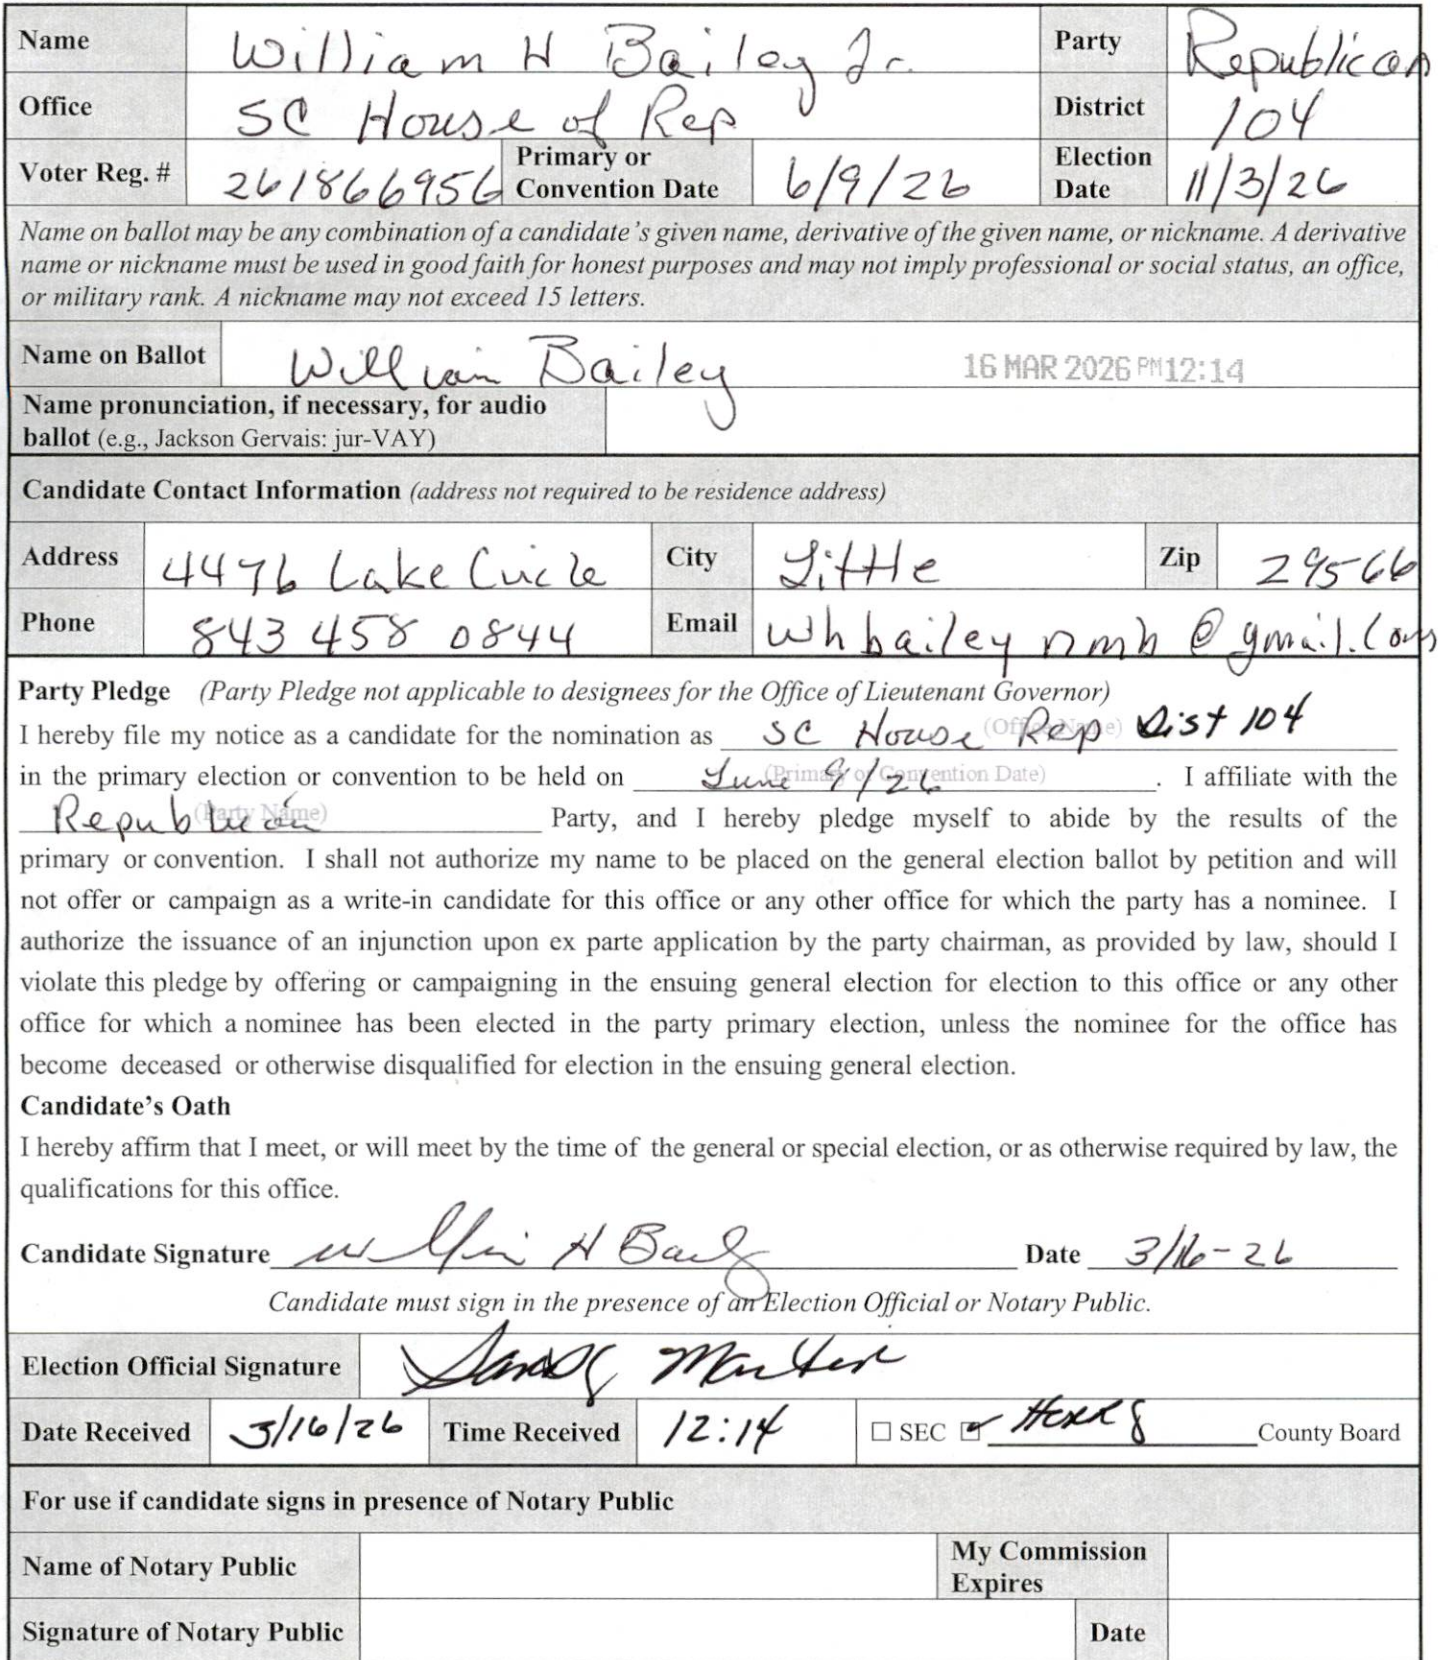 Name William H Bailey Jr. Party Republican
Office SC House of Rep District 104
Voter Reg. # 261866956 Primary or Convention Date 6/9/26 Election Date 11/3/26
Name on ballot may be any combination of a candidate's given name, derivative of the given name, or nickname. A derivative
name or nickname must be used in good faith for honest purposes and may not imply professional or social status, an office,
or military rank. A nickname may not exceed 15 letters.
Name on Ballot William Bailey 16 MAR 2026 PM12:14
Name pronunciation, if necessary, for audio
ballot (e.g., Jackson Gervais: jur-VAY)
Candidate Contact Information (address not required to be residence address)
Address 4476 Lake Circle City Little Zip 29566
Phone 843 458 0844 Email whbaileynmb@gmail.com
Party Pledge (Party Pledge not applicable to designees for the Office of Lieutenant Governor)
I hereby file my notice as a candidate for the nomination as SC House Rep Dist 104 (Office Name)
in the primary election or convention to be held on June 9/26 (Primary or Convention Date). I affiliate with the
Republican (Party Name) Party, and I hereby pledge myself to abide by the results of the
primary or convention. I shall not authorize my name to be placed on the general election ballot by petition and will
not offer or campaign as a write-in candidate for this office or any other office for which the party has a nominee. I
authorize the issuance of an injunction upon ex parte application by the party chairman, as provided by law, should I
violate this pledge by offering or campaigning in the ensuing general election for election to this office or any other
office for which a nominee has been elected in the party primary election, unless the nominee for the office has
become deceased or otherwise disqualified for election in the ensuing general election.
Candidate's Oath
I hereby affirm that I meet, or will meet by the time of the general or special election, or as otherwise required by law, the
qualifications for this office.
Candidate Signature William H Bailey Date 3/16-26
Candidate must sign in the presence of an Election Official or Notary Public.
Election Official Signature Sandy Martin
Date Received 3/16/26 Time Received 12:14 ☐ SEC ☑ Horry County Board
For use if candidate signs in presence of Notary Public
Name of Notary Public My Commission Expires
Signature of Notary Public Date